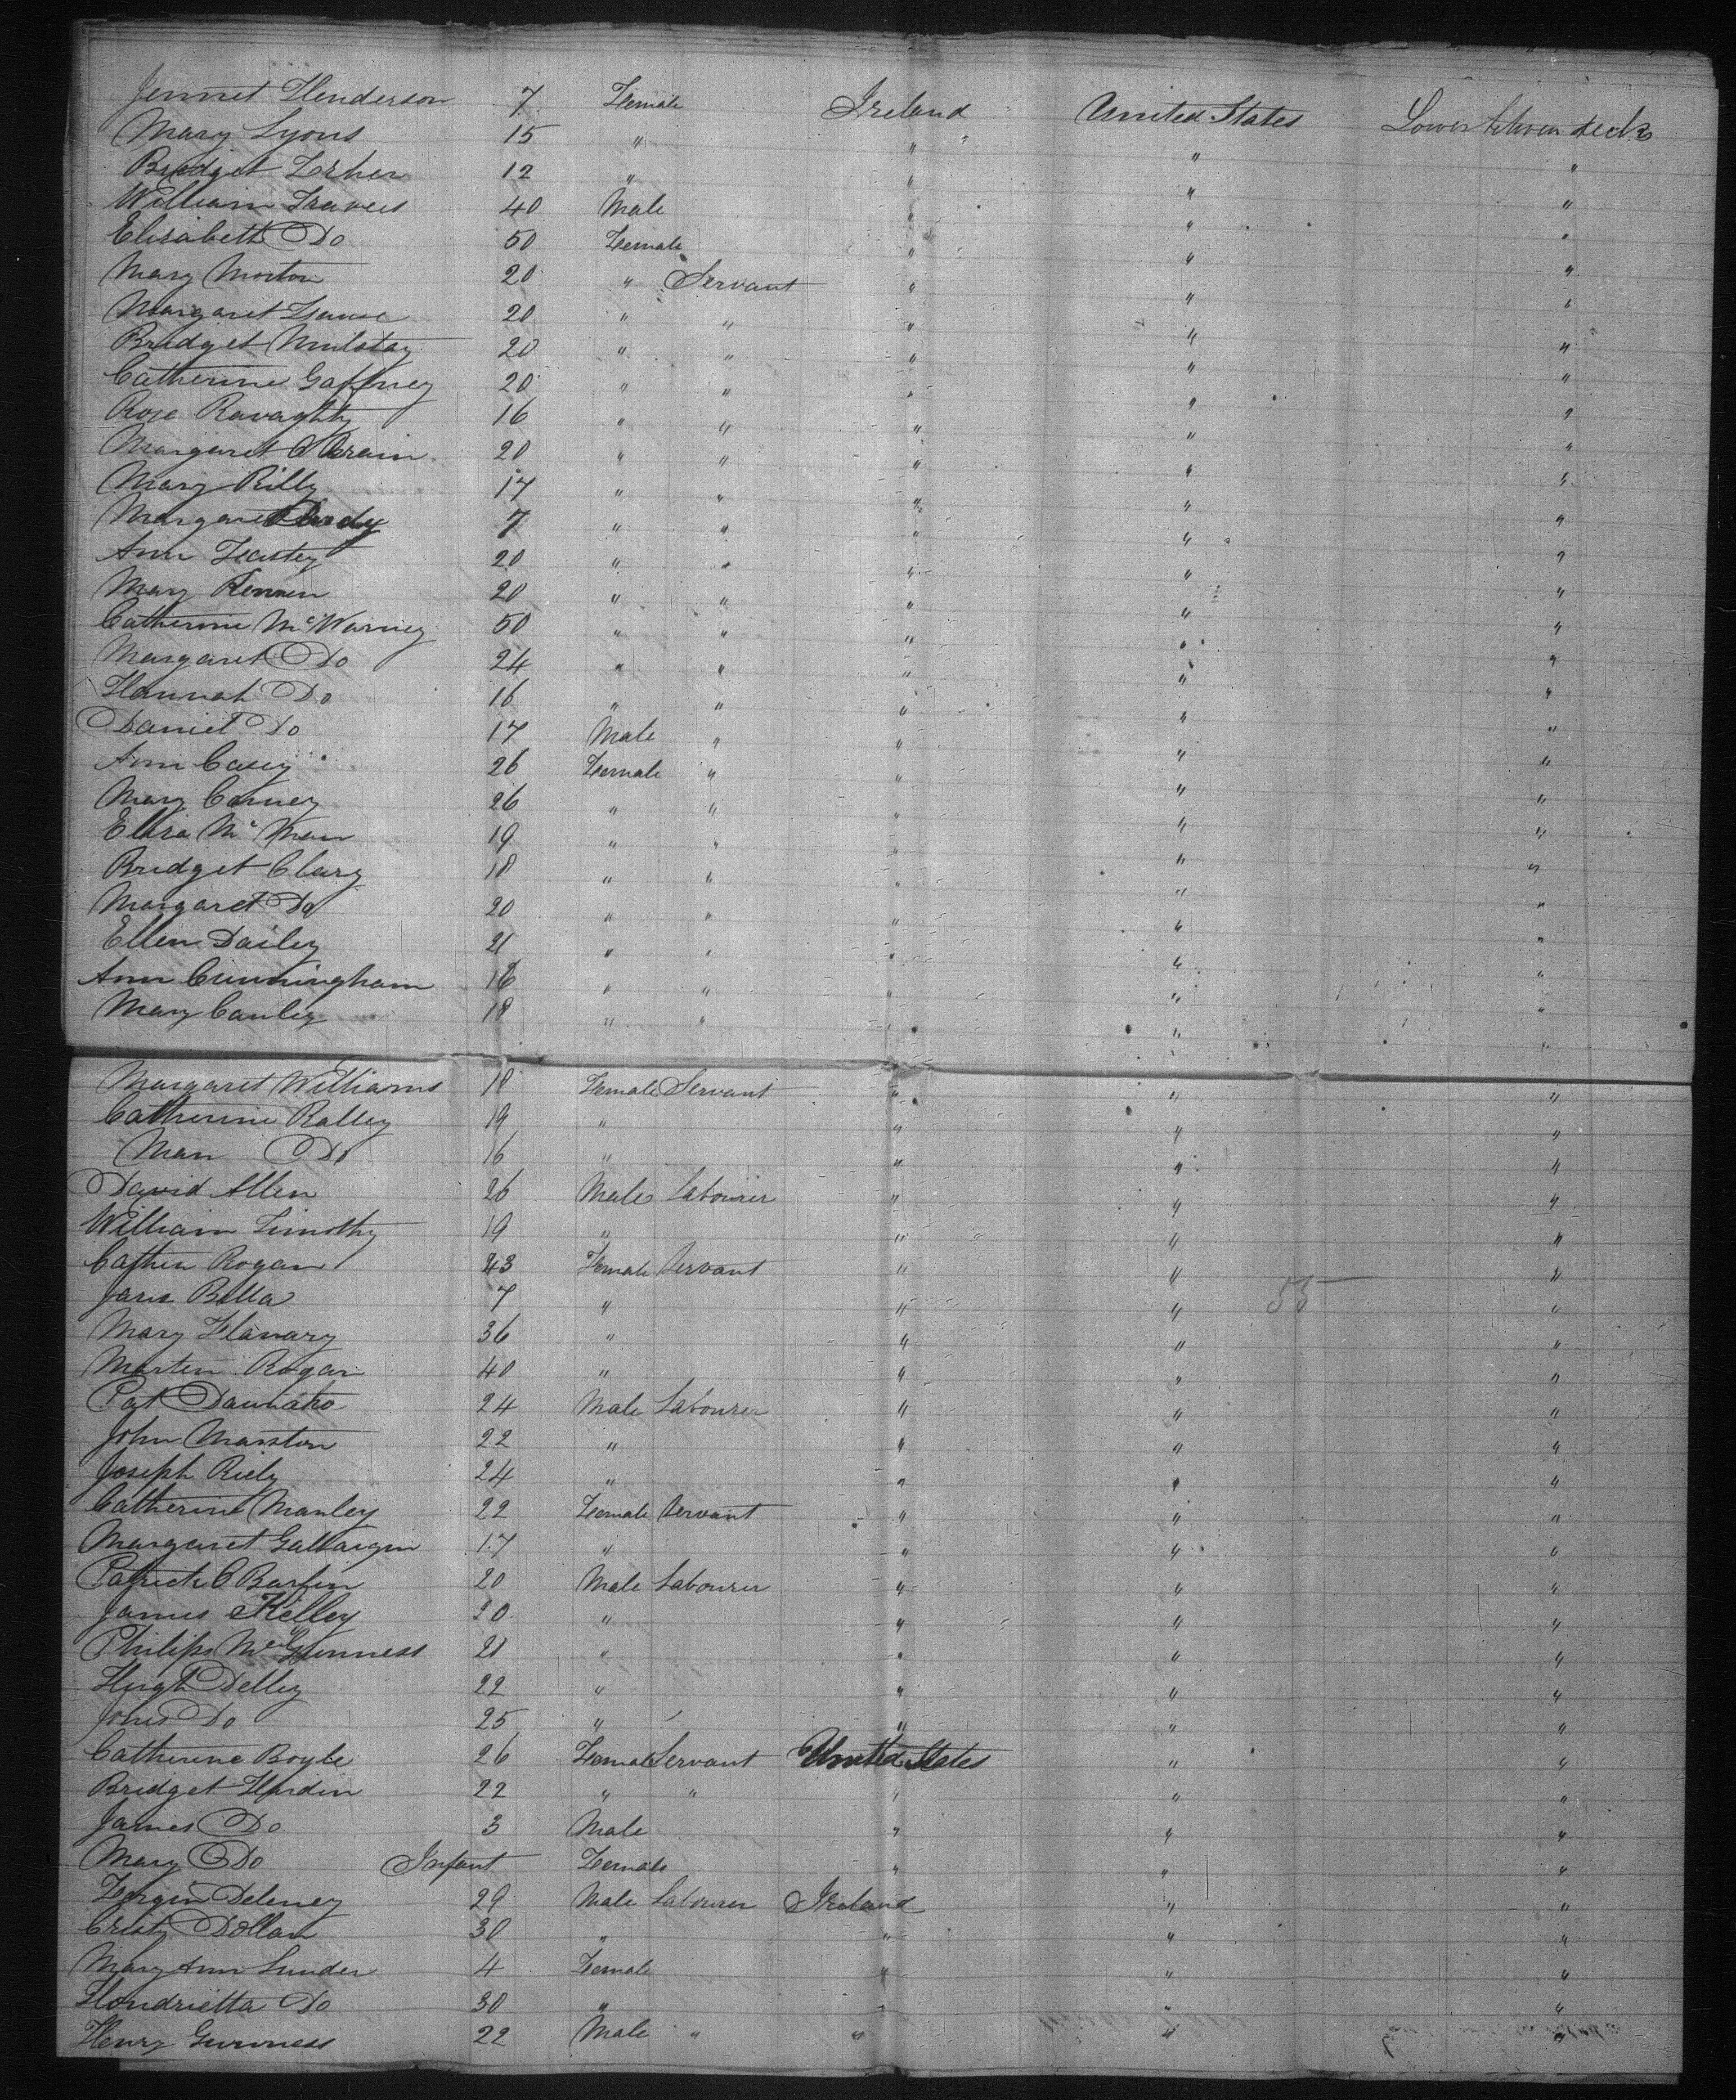 Jennet Henderson 7 Female Ireland United States Lower between decks
Mary Lyons 15 " " " "
Bridget 12 " " " "
William Travers 40 Male " " "
Elisabeth Do 50 Female " " "
Mary Morton 20 " Servant " " "
Margaret 20 " " " " "
Bridget 20 " " " " "
Catherine Gaffney 20 " " " " "
Rose 16 " " " " "
Margaret 20 " " " " "
Mary Rilly 17 " " " " "
Margaret 7 " " " " "
Ann 20 " " " " "
Mary 20 " " " " "
Catherine Mc Warney 50 " " " " "
Margaret Do 24 " " " " "
Hannah Do 16 " " " " "
Daniel Do 17 Male " " " "
Ann Casey 26 Female " " " "
Mary Carney 26 " " " " "
19 " " " " "
Bridget Clary 18 " " " " "
Margaret Do 20 " " " " "
Ellen Dailey 21 " " " " "
Ann Cunningham 18 " " " " "
Mary Cauley 18 " " " " "
Margaret Williams 18 Female Servant " " "
Catherine Ralley 19 " " " "
Do 16 " " " "
David Allen 26 Male Labourer " " "
William Timothy 19 " " " "
Rogan 43 Female Servant " " "
Bella 7 " " " " 55
Mary Flanary 36 " " " "
Marten Rogan 40 " " " "
Pat 24 Male Labourer " " "
John Marston 22 " " " "
Joseph Riely 24 " " " "
Catherine Manley 22 Female Servant " " "
Margaret 17 " " " "
Patrick 20 Male Labourer " " "
James Kelley 20 " " " "
Philips McGinness 21 " " " "
Hugh Delley 22 " " " "
Do 25 " " " "
Catherine Boyle 26 Female Servant United States " "
Bridget Hardin 22 " " " " "
James Do 3 Male " " "
Mary Do Infant Female " " "
Deleney 29 Male Labourer Ireland " "
Cristy Dollan 30 " " " "
Mary Ann 4 Female " " "
Hondrietta Do 30 " " " "
Henry Gunness 22 Male " " " "